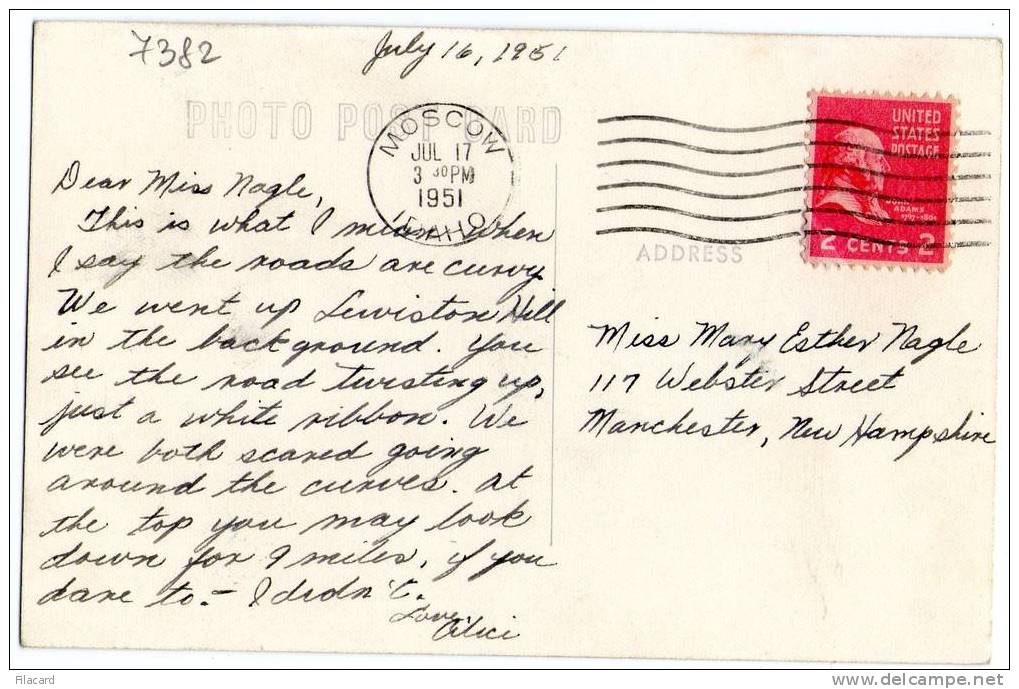 7382
July 16, 1951
PHOTO POST CARD
MOSCOW
JUL 17
3 30 PM
1951
IDAHO
UNITED
STATES
POSTAGE
JOHN
ADAMS
1797-1801
2 CENTS 2
ADDRESS
Dear Miss Nagle,
This is what I mean when
I say the roads are curvy
We went up Lewiston Hill
in the background. You
see the road twisting up,
just a white ribbon. We
were both scared going
around the curves. At
the top you may look
down for 9 miles, if you
dare to. — I didn't.
Love,
Alici
Miss Mary Esther Nagle
117 Webster Street
Manchester, New Hampshire
Filacard
www.delcampe.net